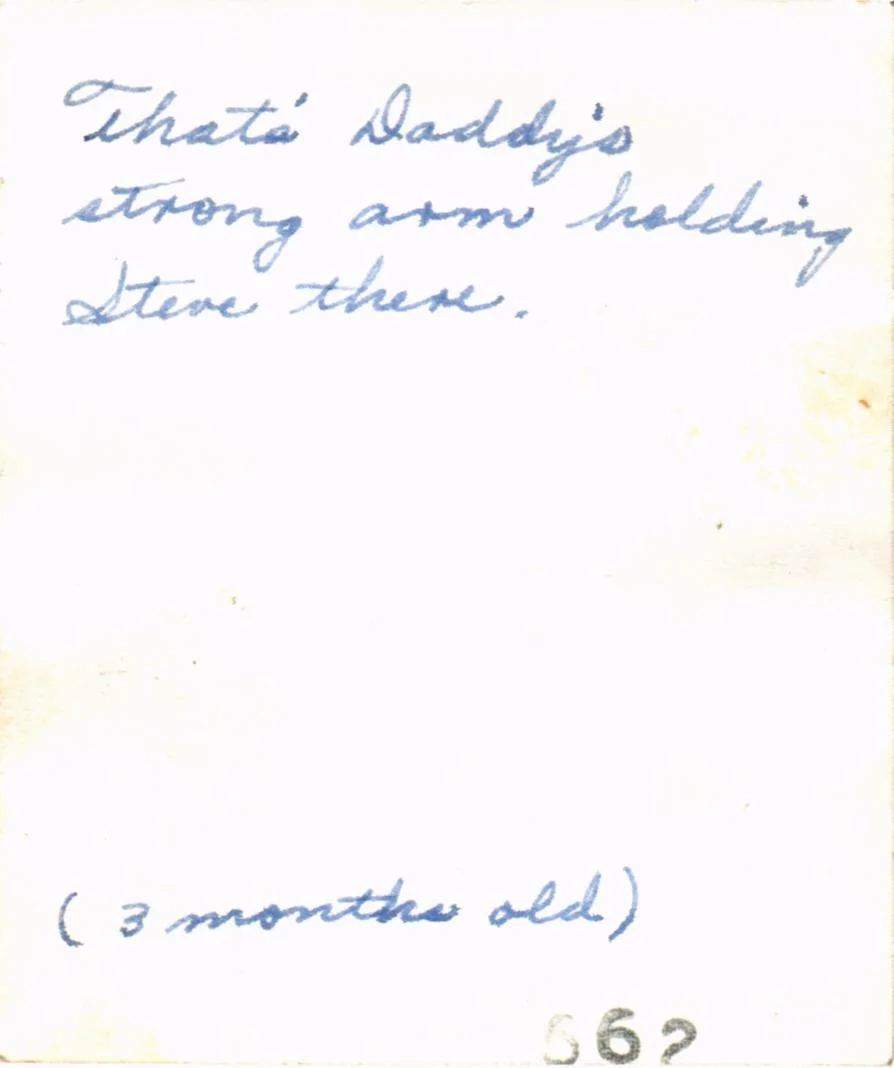 That's Daddy's
strong arm holding
Steve there.
( 3 months old)
662